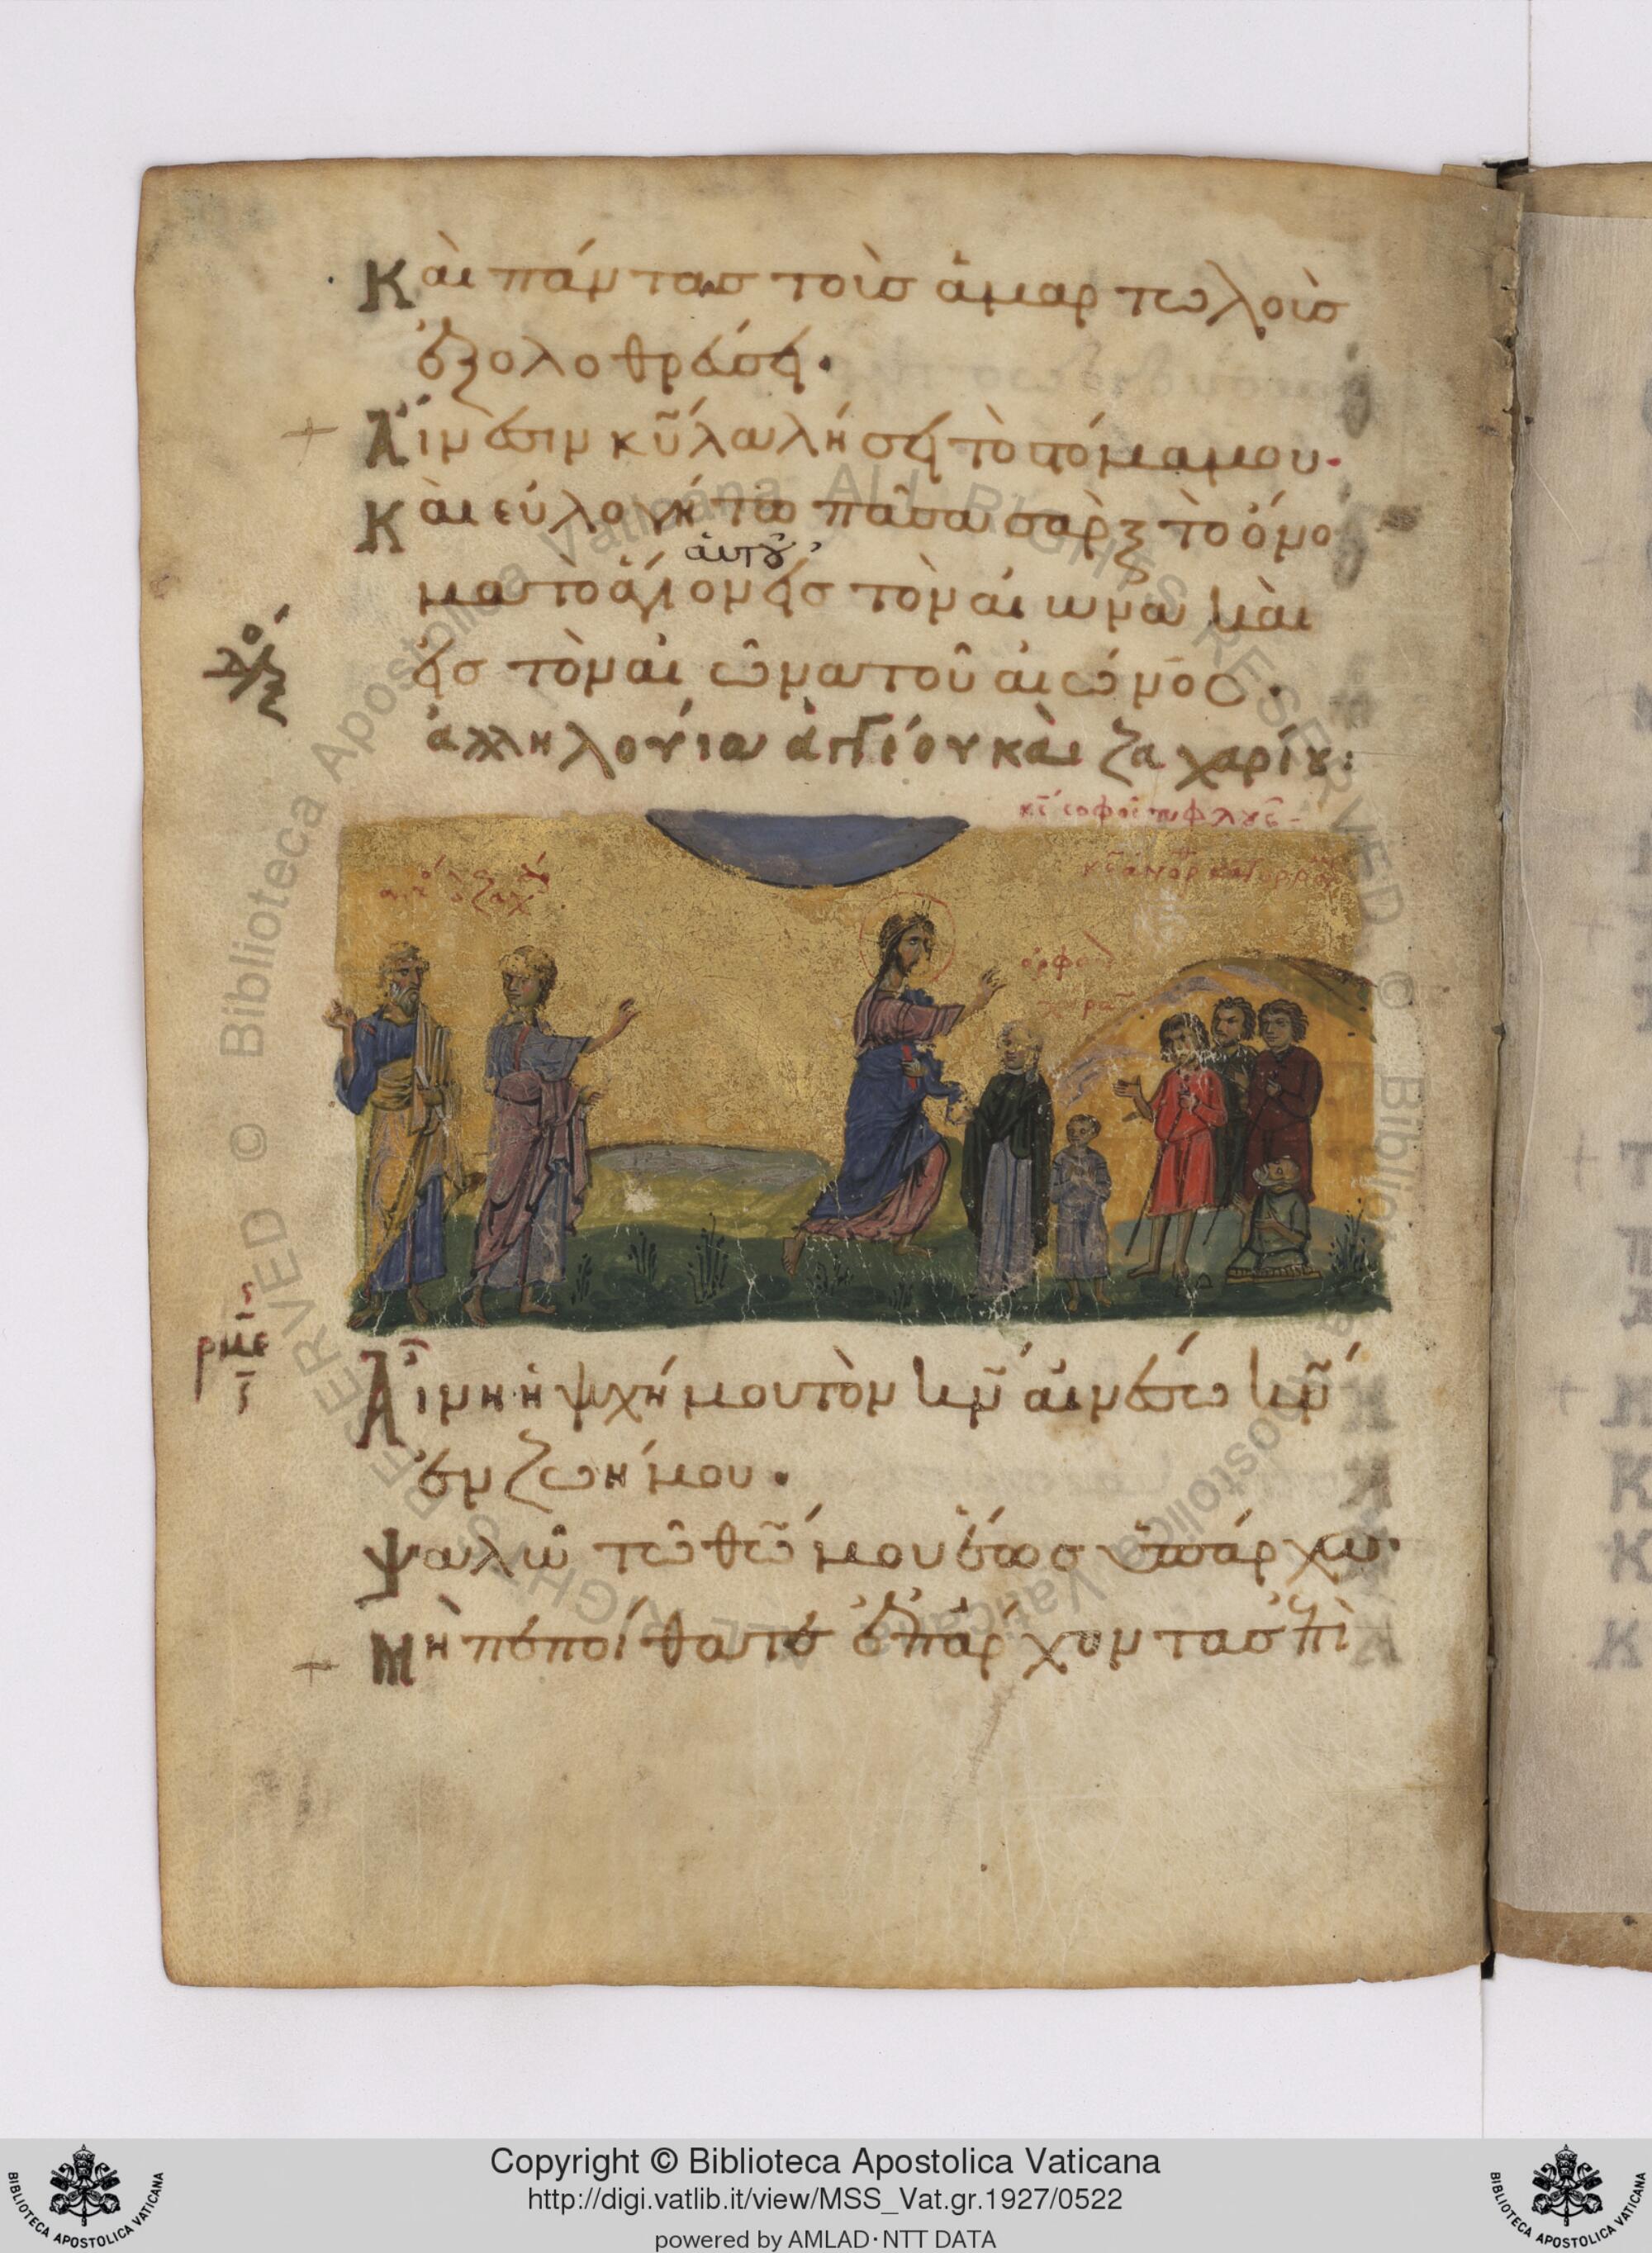 Καὶ πάντας τοὺς ἁμαρτωλοὺς
ἐξολοθρεύσει.
Αἴνεσιν κῡ λαλήσει τὸ στόμα μου.
Καὶ εὐλογείτω πᾶσα σὰρξ τὸ ὄνο
αὐτοῦ
μα τὸ ἅγιον εἰς τὸν αἰῶνα καὶ
εἰς τὸν αἰῶνα τοῦ αἰῶνος.
δόξ
ἀλληλούϊα ἀγγέου καὶ ζαχαρίου:
κς σοφοῖ τυφλούς
κς ἀνορ
ὀρφα
χήρα
ρμε
Αἴνει ἡ ψυχή μου τὸν κν αἰνέσω κν
ἐν ζωῇ μου.
Ψαλῶ τῶ θω μου ἕως ὑπάρχω.
Μὴ πεποίθατε ἐπ᾽ ἄρχοντας ἐπὶ
Copyright © Biblioteca Apostolica Vaticana
http://digi.vatlib.it/view/MSS_Vat.gr.1927/0522
powered by AMLAD·NTT DATA
BIBLIOTECA APOSTOLICA VATICANA
BIBLIOTECA APOSTOLICA VATICANA